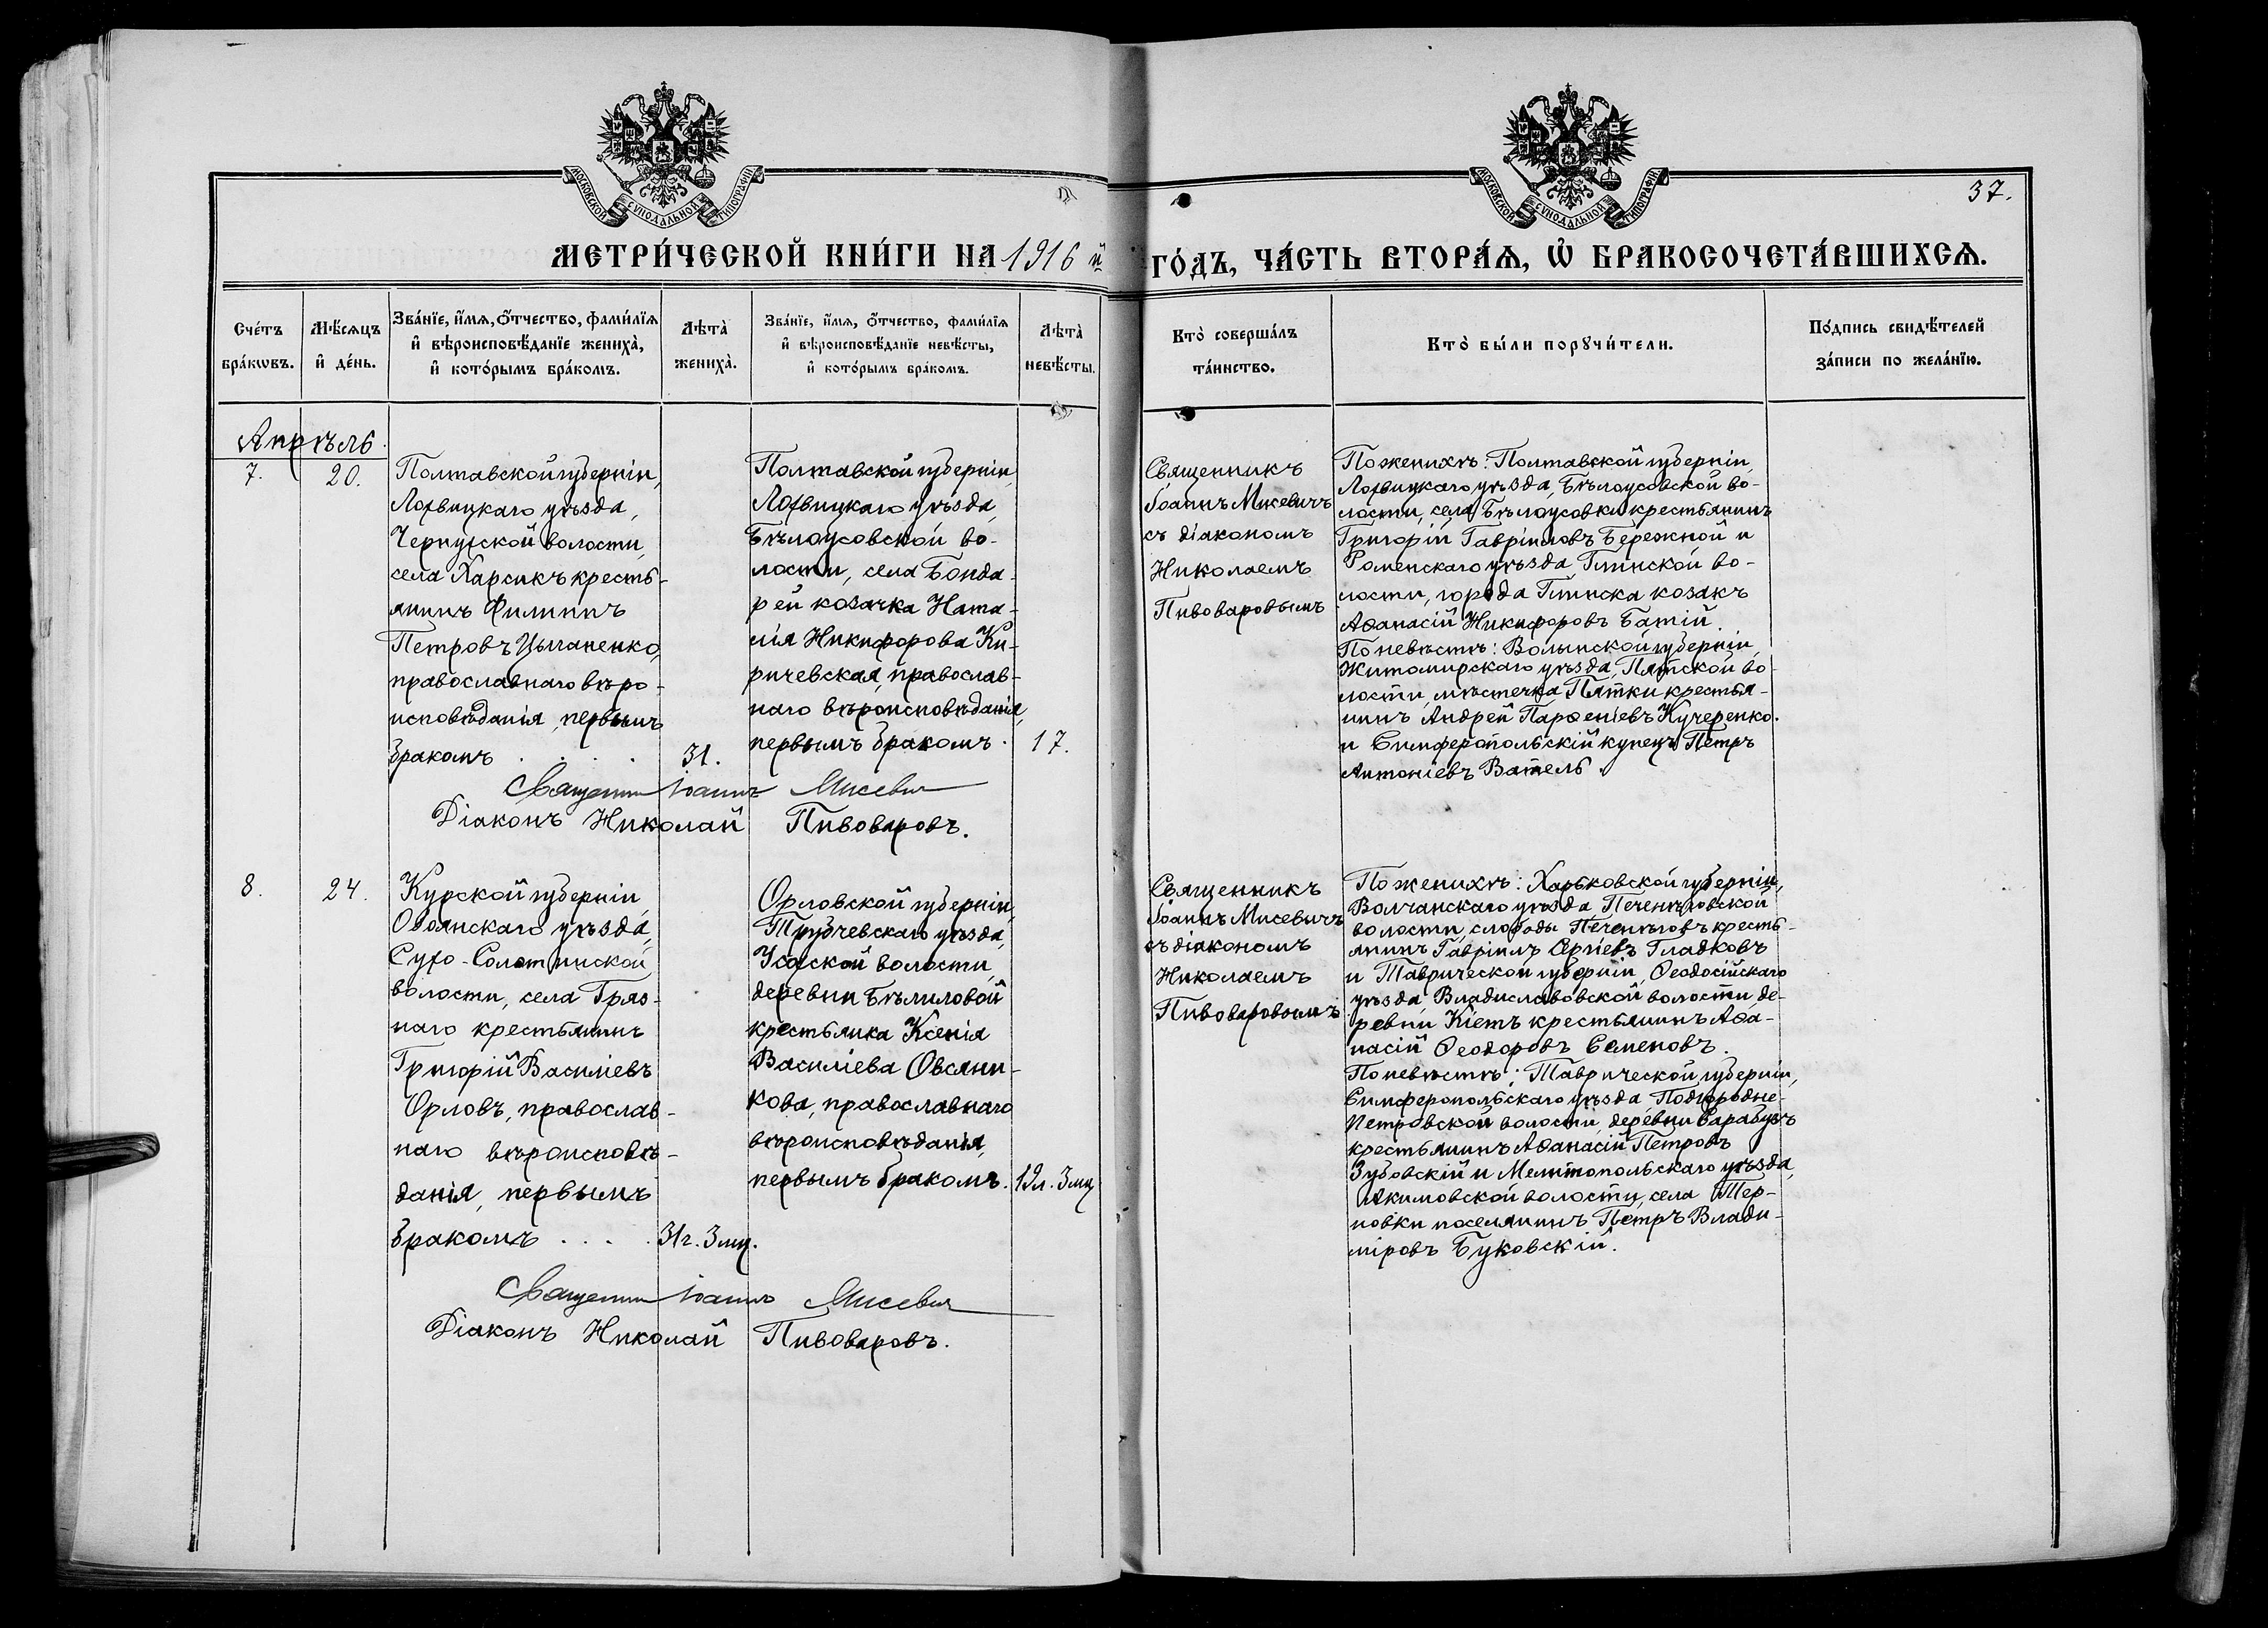 МОСКОВСКОЙ СУНОДАЛЬНОЙ ТИПОГРАФІИ
МОСКОВСКОЙ СУНОДАЛЬНОЙ ТИПОГРАФІИ
37.
МЕТРИ́ЧЕСКОЙ КНИ́ГИ НА 1916 й
ГО́ДЪ, ЧА́СТЬ ВТОРА́Ѧ, Ѡ҆ БРАКОСОЧЕТА́ВШИХСѦ.
Сче́тъ бра́кѡвъ.
Мѣ́сяцъ и҆ де́нь.
Зва́нїе, и҆́мѧ, ѻ҆́тчество, фами́лїѧ
и҆ вѣроисповѣ́данїе жениха̀,
и҆ кото́рымъ бра́комъ.
Лѣта̀ жениха̀.
Зва́нїе, и҆́мѧ, ѻ҆́тчество, фами́лїѧ
и҆ вѣроисповѣ́данїе невѣ́сты,
и҆ кото́рымъ бра́комъ.
Лѣта̀ невѣ́сты.
Кто̀ соверша́лъ
та́инство.
Кто̀ бы́ли порꙋчи́тели.
По́дпись свидѣ́телей
за́писи по жела́нїю.
Апрѣль
7.
20.
Полтавской губерніи,
Лохвицкаго уѣзда,
Чернухской волости,
села Харсикъ кресть-
янинъ Филиппъ
Петровъ Цыганенко,
православнаго вѣро-
исповѣданія, первымъ
бракомъ . . . .
31.
Полтавской губерніи,
Лохвицкаго уѣзда,
Бѣлоусовской во-
лости, села Бонда-
рей козачка Ната-
лія Никифорова Ки-
ричевская, православ-
наго вѣроисповѣданія,
первымъ бракомъ.
17.
Священникъ
Іоаннъ Мисевичъ
съ діакономъ
Николаемъ
Пивоваровымъ
По женихѣ: Полтавской губерніи,
Лохвицкаго уѣзда, Бѣлоусовской во-
лости, села Бѣлоусовки крестьянинъ
Григорій Гавріиловъ Бережной и
Роменскаго уѣзда Глинской во-
лости, города Глинска козакъ
Аѳанасій Никифоровъ Батій.
По невѣстѣ: Волынской губерніи,
Житомирскаго уѣзда, Пятской во-
лости, мѣстечка Пятки крестья-
нинъ Андрей Парѳеніевъ Кучеренко.
и Симферопольскій купецъ Петръ
Антоніевъ Ватель.
Священник Іоаннъ Мисевич
Діаконъ Николай Пивоваровъ.
8.
24.
Курской губерніи,
Обоянскаго уѣзда,
Сухо-Солотинской
волости, села Гряз-
наго крестьянинъ
Григорій Василіевъ
Орловъ, православ-
наго вѣроисповѣ-
данія, первымъ
бракомъ . . . .
31г. 3 мц.
Орловской губерніи,
Трубчевскаго уѣзда,
Усохской волости,
деревни Бѣлиловой
крестьянка Ксенія
Василіева Овсянни-
кова, православнаго
вѣроисповѣданія,
первымъ бракомъ.
19л. 3 мц
Священникъ
Іоаннъ Мисевичъ
съ діакономъ
Николаемъ
Пивоваровымъ
По женихѣ: Харьковской губерніи,
Волчанскаго уѣзда Печенѣговской
волости, слободы Печенѣговъ кресть-
янинъ Гавріилъ Сергіевъ Гладковъ
и Таврической губерніи, Ѳеодосійскаго
уѣзда, Владиславовской волости, де-
ревни Кіетъ крестьянинъ Аѳа-
насій Ѳеодоровъ Семеновъ.
По невѣстѣ: Таврической губерніи,
Симферопольскаго уѣзда Подгородне-
Петровской волости, деревни Сарабузъ
крестьянинъ Аѳанасій Петровъ
Зубовскій и Мелитопольскаго уѣзда,
Акимовской волости, села Тер-
новки поселянинъ Петръ Влади-
міровъ Буковскій.
Священник Іоаннъ Мисевич
Діаконъ Николай Пивоваровъ.